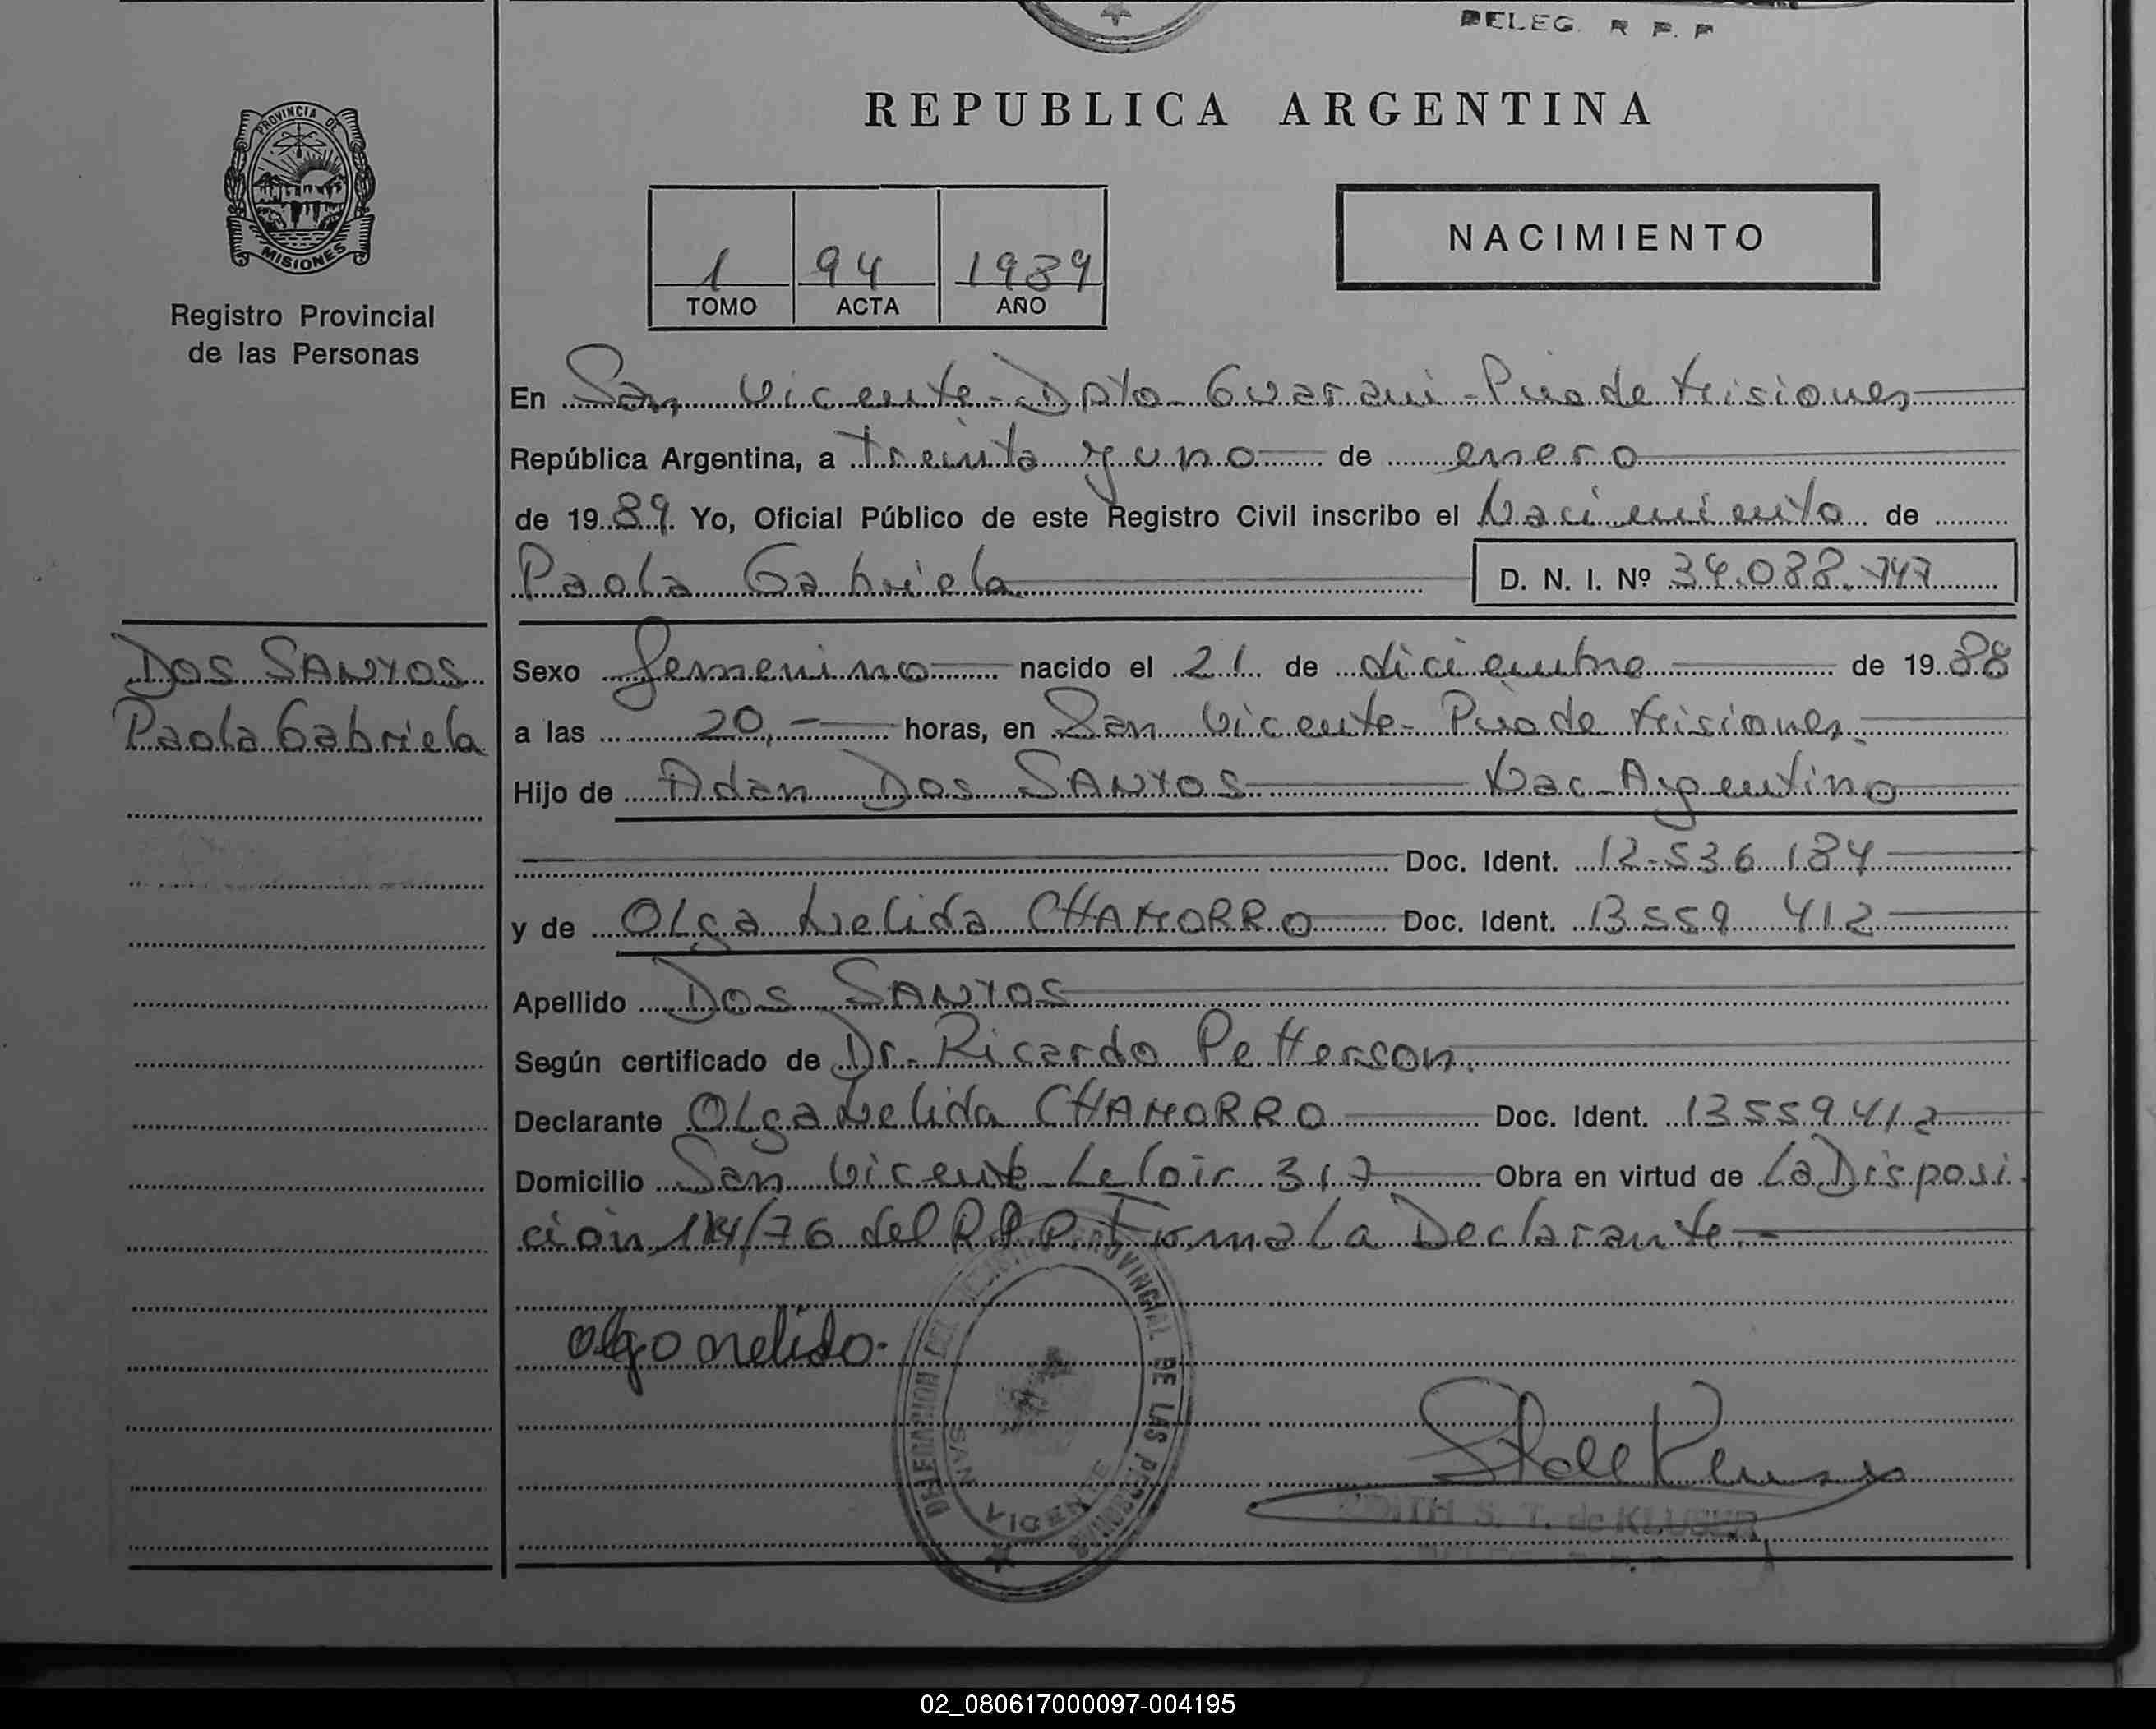 DELEG. R P. P
REPUBLICA ARGENTINA
PROVINCIA DE
MISIONES
Registro Provincial
de las Personas
1 94 1989
TOMO ACTA AÑO
NACIMIENTO
En San Vicente - Dpto Guarani - Pcia de Misiones
República Argentina, a treinta y uno de enero
de 1989. Yo, Oficial Público de este Registro Civil inscribo el Nacimiento de
Paola Gabriela D. N. I. Nº 34.088.747
DOS SANTOS
Paola Gabriela
Sexo femenino nacido el 21 de diciembre de 1988
a las 20,- horas, en San Vicente - Pcia de Misiones.
Hijo de Adan Dos SANTOS Nac. Argentino
Doc. Ident. 12.536.184
y de Olga Nelida CHAMORRO Doc. Ident. 13.559.412
Apellido Dos SANTOS
Según certificado de Dr. Ricardo Petterson.
Declarante Olga Nelida CHAMORRO Doc. Ident. 13.559.412
Domicilio San Vicente Leloir 317 Obra en virtud de La Disposi
ción 114/76 del R.P.P. Firma La Declarante.-
olga nelida.
DELEGACION DEL REGISTRO PROVINCIAL DE LAS PERSONAS
SAN VICENTE
EDITH S. T. de KLUSER
02_080617000097-004195